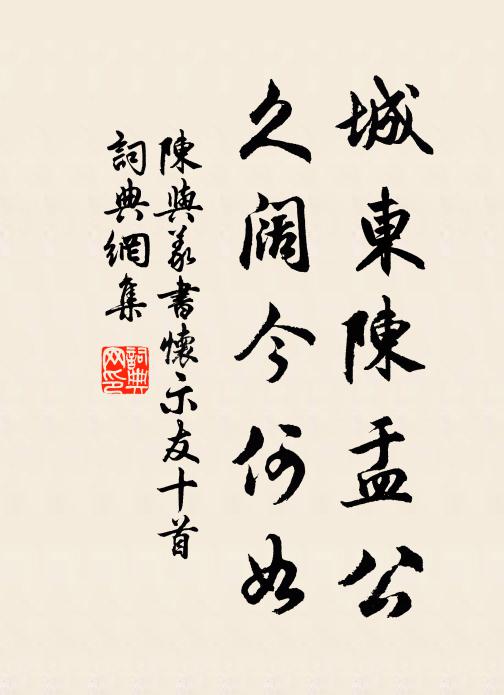 城東陳盂公
久阔今何如
陳與義書懷示友十首
詞典網集
詞典网印